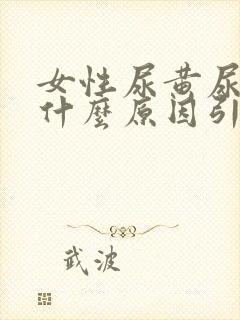 女性尿黄尿
什麼原因引
武波